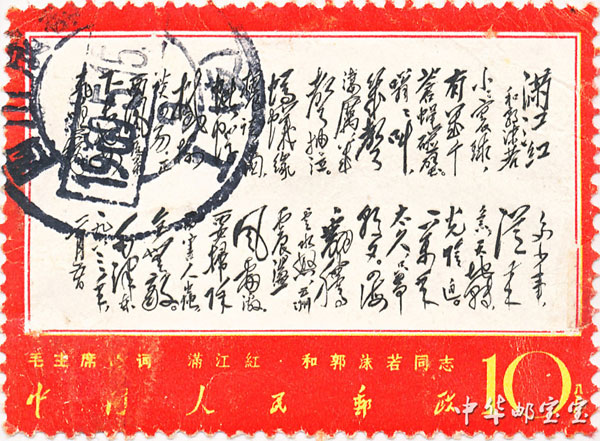 满江红
和郭沫若
小小寰球,
有几个
苍蝇碰壁。
嗡嗡叫,
几声
凄厉,几
声抽泣。
蚂蚁缘
槐夸大国,
多少事,
从来急;
天地转,
光阴迫。
一万年
太久,只争
朝夕。四海
翻腾
云水怒,五洲
震荡
风雷激。
要扫除
一切害人虫,
全无敌。
毛泽东
一九六三年
一月九日
毛主席诗词 满江红·和郭沫若同志
中国人民邮政
10
八分
中华邮宝宝